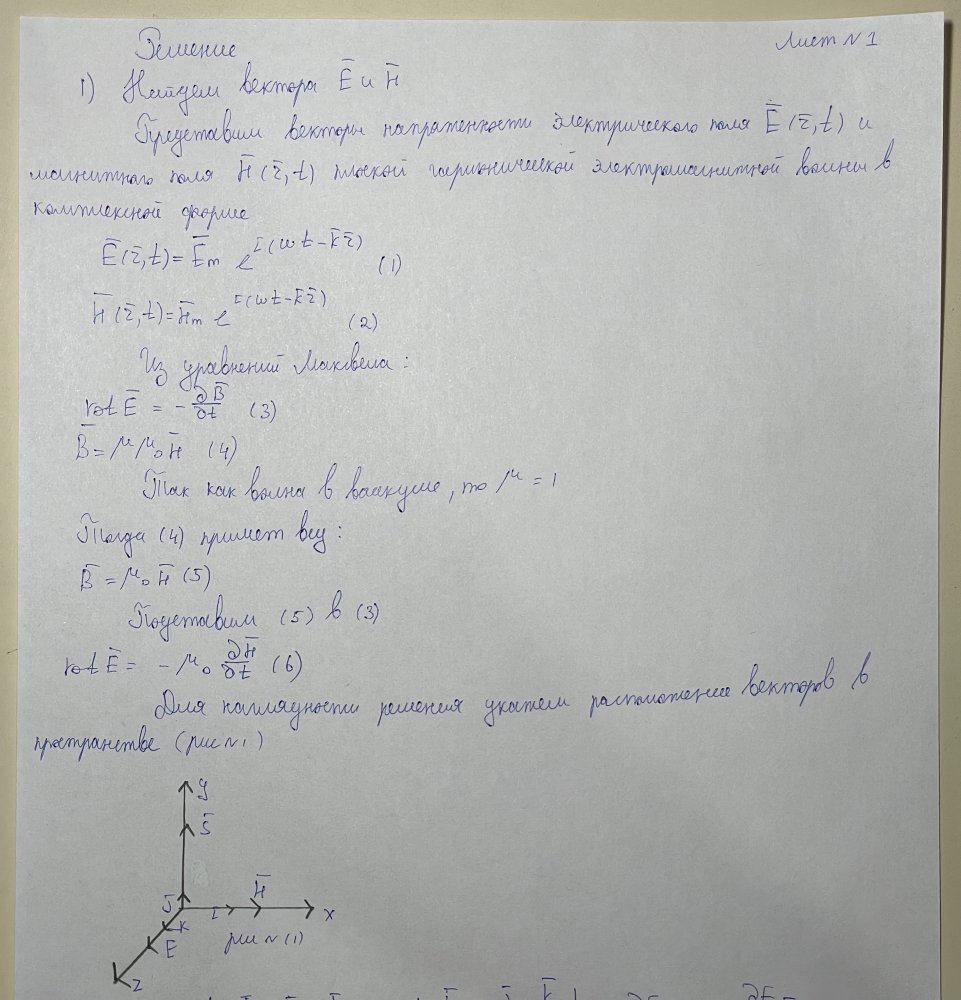 Решение
Лист N 1
1) Найдем вектора Ē и H̄
Представим векторы напряженности электрического поля Ē (r̄, t) и
магнитного поля H̄ (r̄, t) плоской гармонической электромагнитной волны в
комплексной форме
Ē(r̄, t) = Ēm e^i(ωt - k̄r̄) (1)
H̄ (r̄, t) = H̄m e^i(ωt - k̄r̄) (2)
Из уравнений Максвела:
rot Ē = - ∂B̄/∂t (3)
B̄ = μμ₀H̄ (4)
Так как волна в ваакуме, то μ = 1
Тогда (4) примет вид:
B̄ = μ₀H̄ (5)
Подставим (5) в (3)
rot Ē = - μ₀ ∂H̄/∂t (6)
Для наглядности решения укажем расположение векторов в
пространстве (рис N1)
y
S̄
H̄
j
i
x
k
E
рис N (1)
z